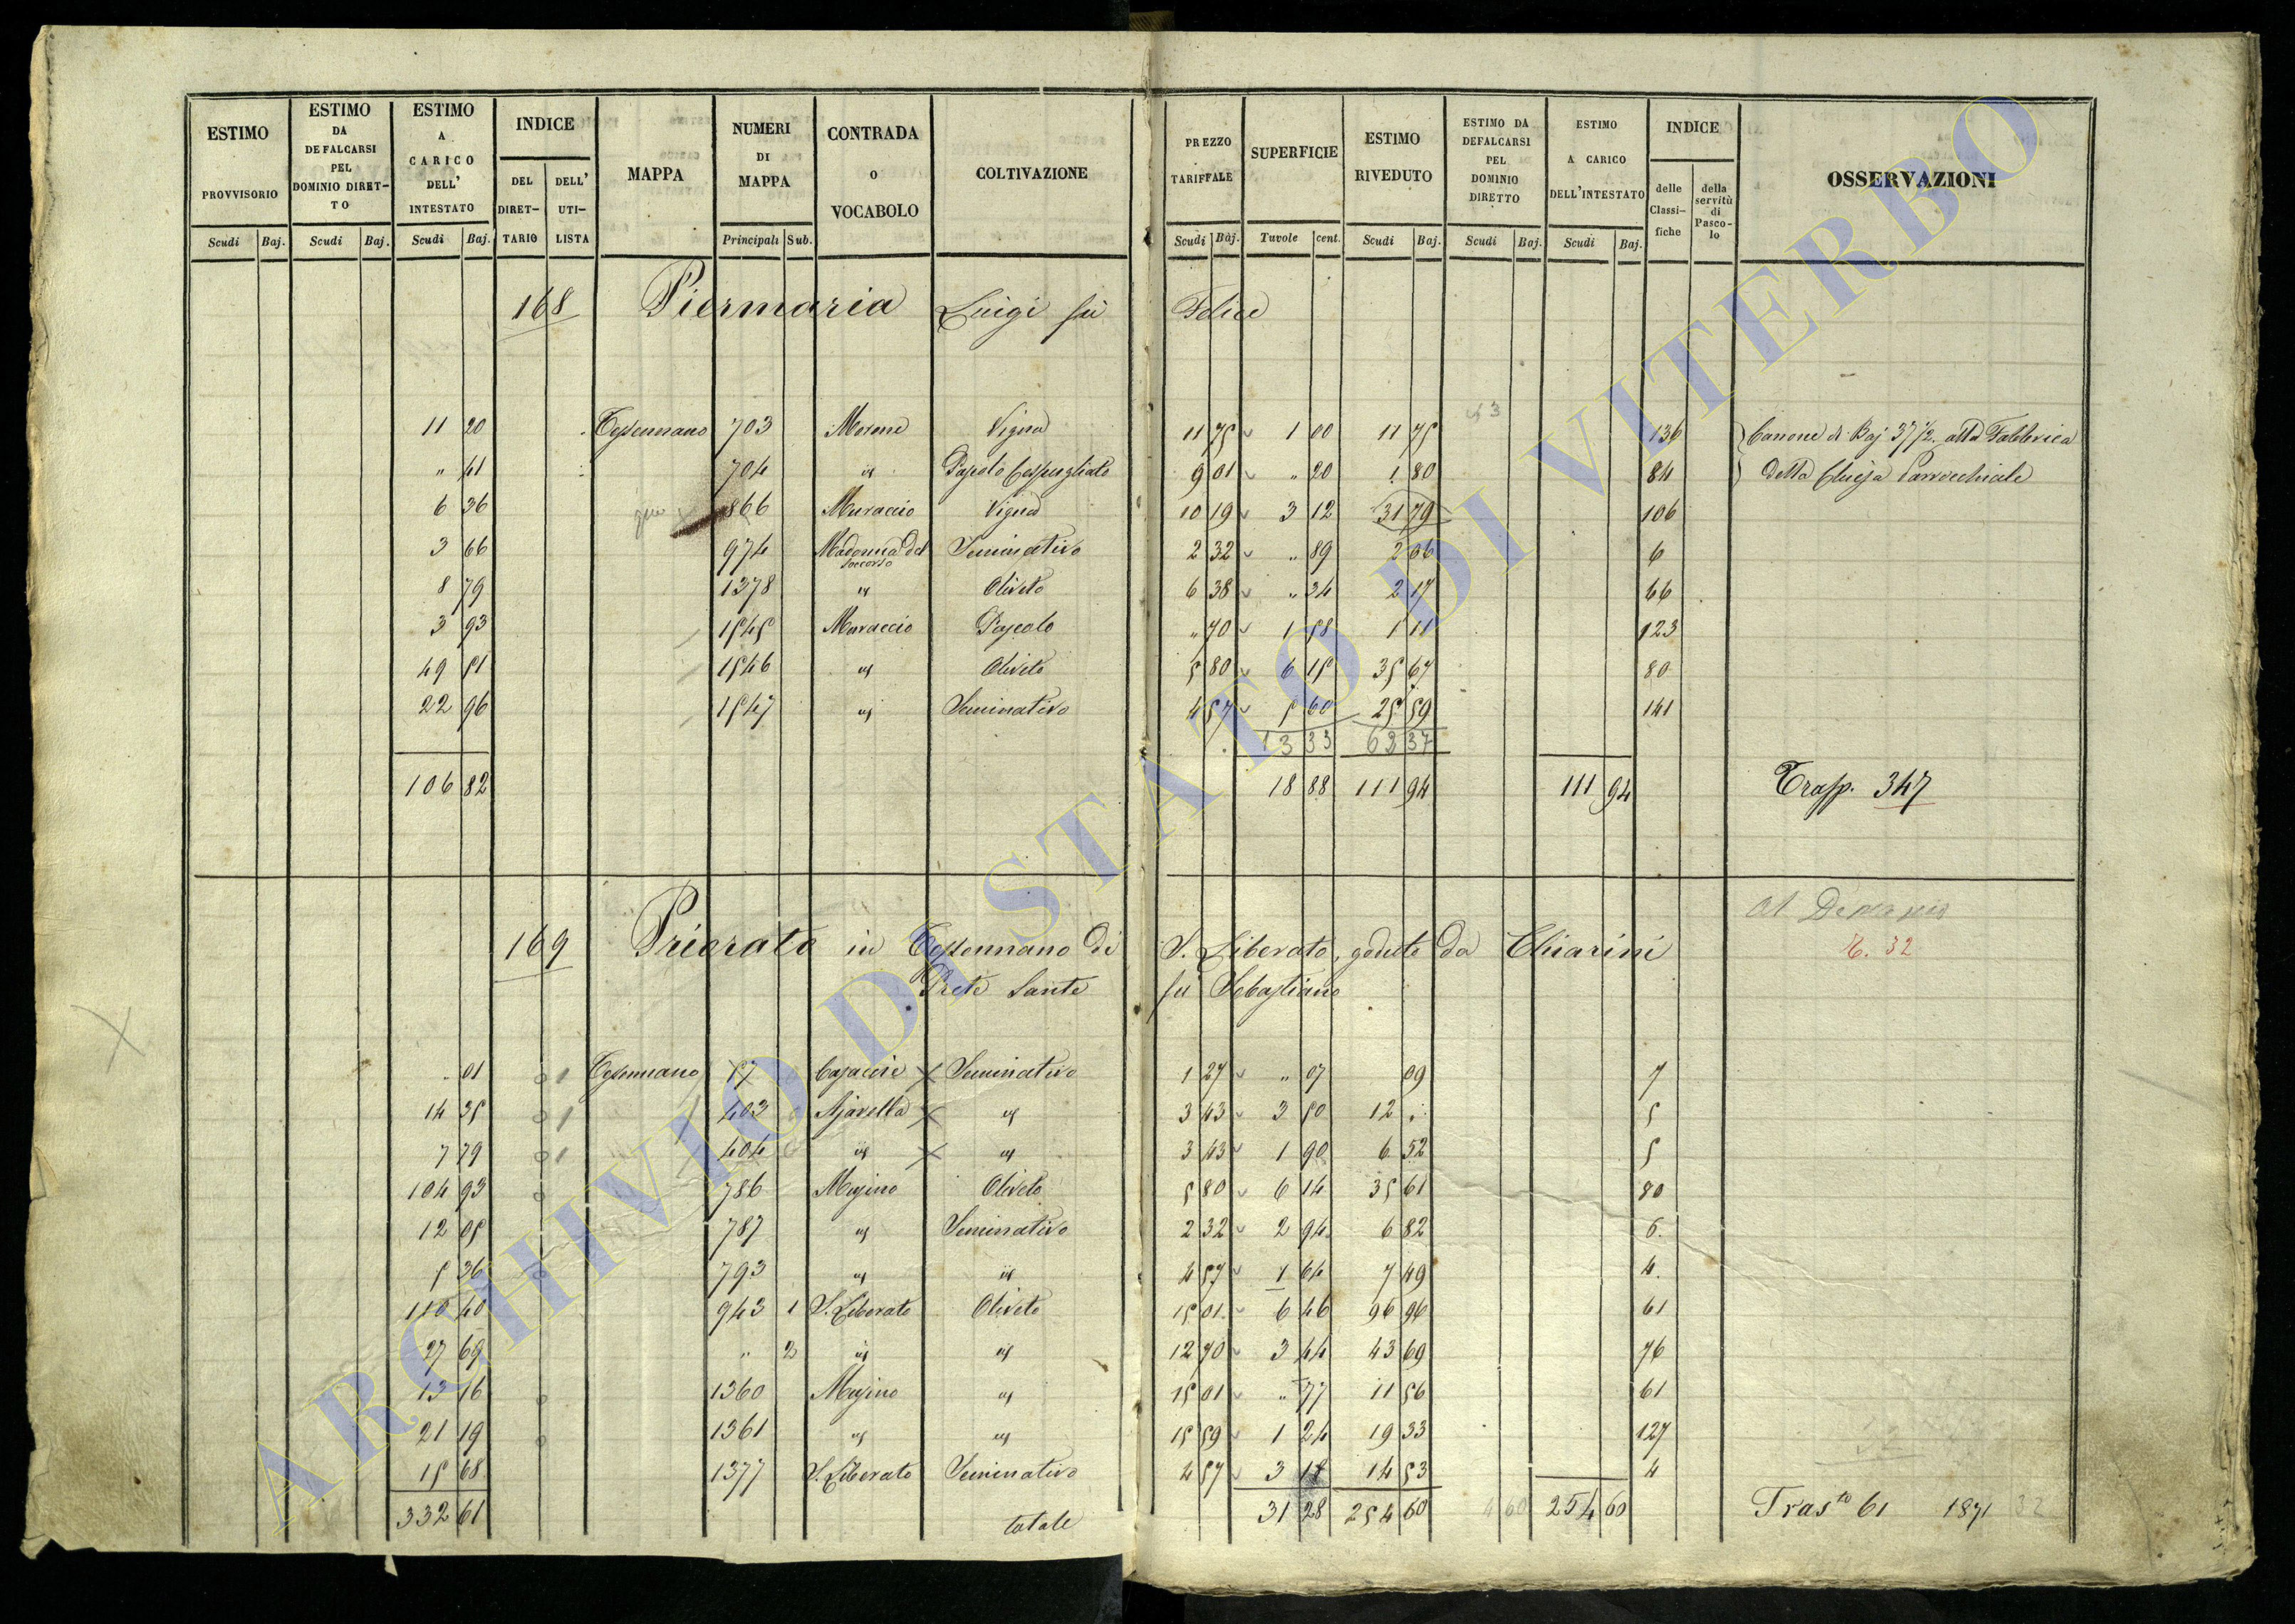 ESTIMO PROVVISORIO Scudi Baj.
ESTIMO DA DEFALCARSI PEL DOMINIO DIRET-TO Scudi Baj.
ESTIMO A CARICO DELL' INTESTATO Scudi Baj.
INDICE DEL DIRET-TARIO DELL' UTI-LISTA
MAPPA
NUMERI DI MAPPA Principali Sub.
CONTRADA O VOCABOLO
COLTIVAZIONE
PREZZO TARIFFALE Scudi Baj.
SUPERFICIE Tavole cent.
ESTIMO RIVEDUTO Scudi Baj.
ESTIMO DA DEFALCARSI PEL DOMINIO DIRETTO Scudi Baj.
ESTIMO A CARICO DELL'INTESTATO Scudi Baj.
INDICE delle Classi-fiche della servitù di Pasco-lo
OSSERVAZIONI
168 Piermaria Luigi fù Felice
11 20 Tessennano 703 Morone Vigna 11 75 1 00 11 75 136 Canone di Baj 37 1/2. alla Fabbrica
" 41 704 id Pascolo Cespugliato 9 01 " 20 1 80 84 della Chiesa Parrocchiale
6 36 866 Muraccio Vigna 10 19 3 12 31 79 106
3 66 974 Madonna del Soccorso Seminativo 2 32 " 89 2 06 6
8 79 1378 id Oliveto 6 38 " 34 2 17 66
3 93 1545 Muraccio Pascolo " 70 1 58 1 11 123
49 51 1546 id Oliveto 5 80 6 15 35 67 80
22 96 1547 id Seminativo 4 57 5 60 25 59 141
13 33 62 37
106 82 18 88 111 94 111 94 Trasp. 347
169 Priorato in Tessennano di S. Liberato, goduto da Chiarini
Prete Sante fù Sebastiano
32
" 01 Tessennano 57 Seminativo 1 27 " 07 09 7
14 35 403 id 3 43 3 50 12 " 5
7 79 404 id id 3 43 1 90 6 52 5
104 93 786 Mosino Oliveto 5 80 6 14 35 61 80
12 05 787 id Seminativo 2 32 2 94 6 82 6.
5 36 793 id id 4 57 1 64 7 49 4.
110 40 943 1 S. Liberato Oliveto 15 01 6 46 96 96 61
27 69 " 2 id id 12 70 3 44 43 69 76
13 16 1360 Mosino id 15 01 " 77 11 56 61
21 19 1361 id id 15 59 1 24 19 33 127
15 68 1377 S. Liberato Seminativo 4 57 3 18 14 53 4
332 61 totale 31 28 254 60 4 60 254 60 Tras.to 61 1871 32
ARCHIVIO DI STATO DI VITERBO